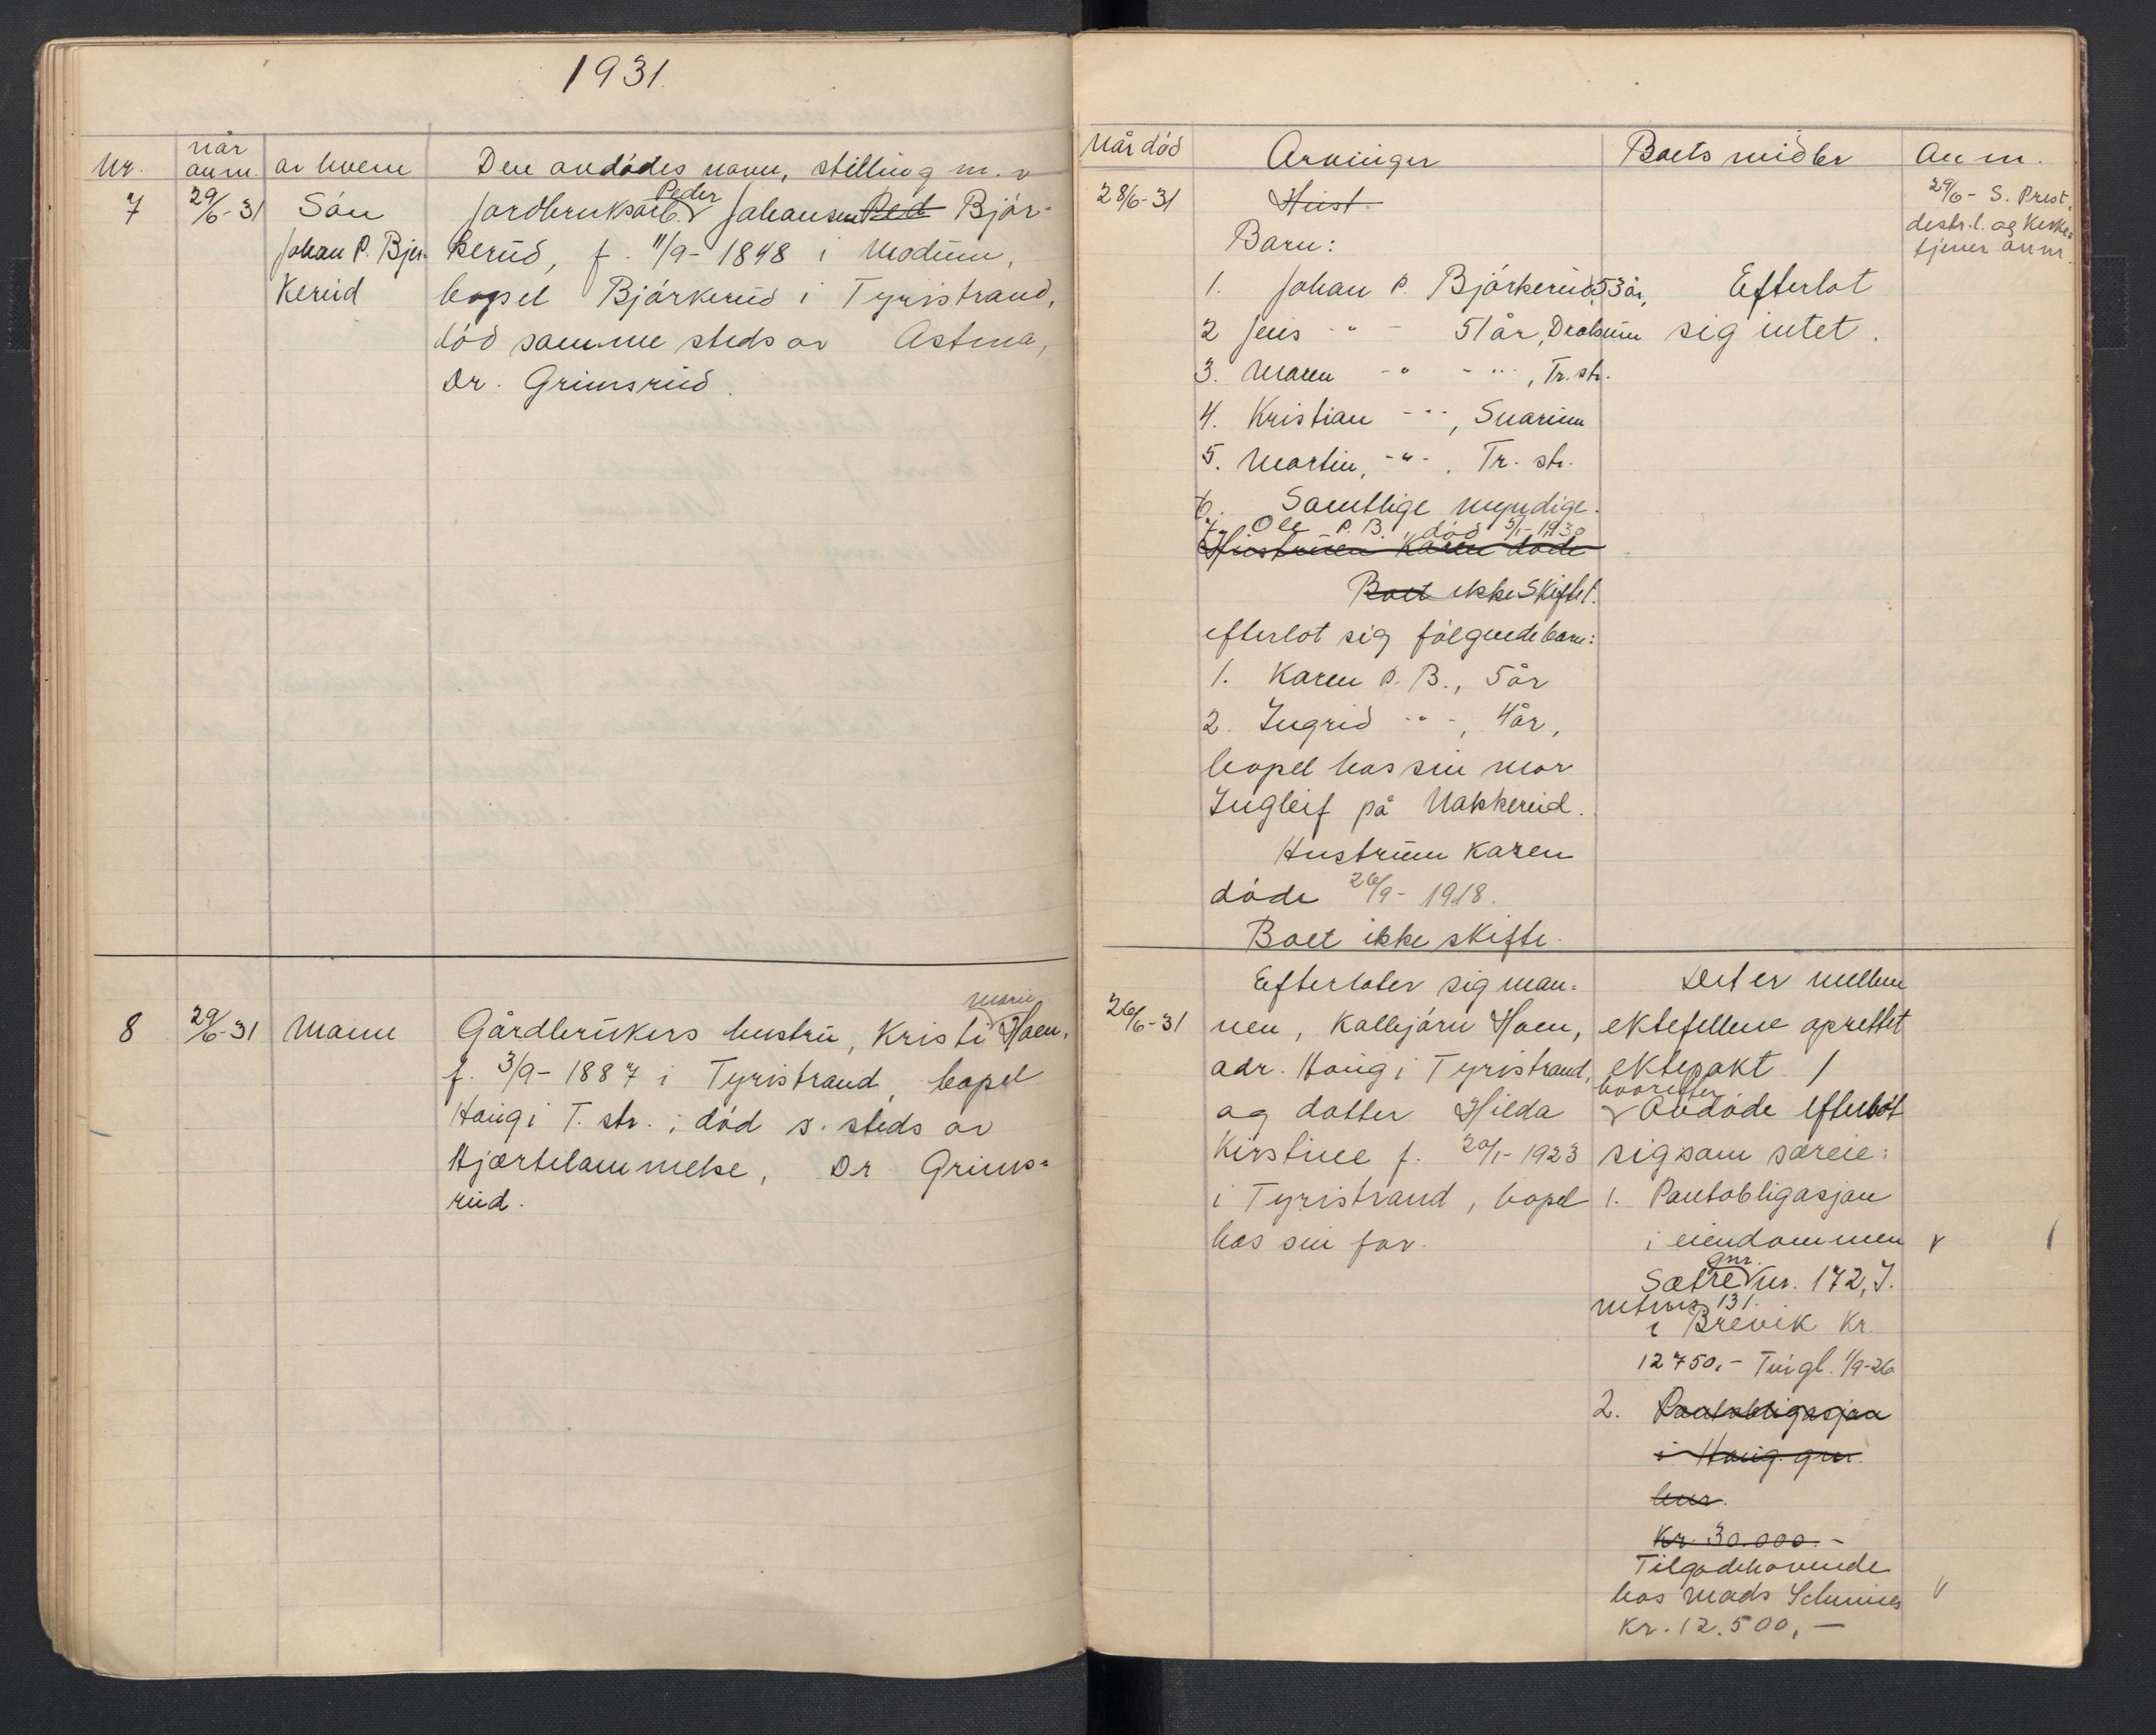 1931.
Nr.
når anm.
av hvem
Den avdødes navn, stilling m. v
7
29/6-31
Søn
Johan P. Bjer-
kerud
Jordbruksarb. Peder Johansen Ped Bjør-
kerud, f. 11/9-1848 i Modum,
bopel Bjørkerud i Tyristrand,
død samme steds av Astma,
Dr. Grimsrud.
8
29/6-31
Mann
Gårdbrukers hustru, Kristi Marie Hoen,
f. 3/9-1887 i Tyristrand, bopel
Haug i T. str.; død s. steds av
Hjærtelammelse, Dr Grims=
rud.
Når død
Arvinger
Boets midler
Anm.
28/6-31
Hust.
Barn:
1. Johan P. Bjørkerud, 53 år,
2 Jens -"- 51 år, Drolsum
3. Maren -"- -"-, Tr. str.
4. Kristian -"-, Snarum
5. Martin, -"-, Tr. str.
6. Samtlige myndige.
7. Ole P. B., død 5/1-1930
Hustruen Karen døde
Boet ikke skiftet.
efterlot sig følgende barn:
1. Karen P. B., 5 år
2. Ingrid -"-, 4 år,
bopel hos sin mor
Ingleif på Nakkerud.
Hustruen Karen
døde 26/9-1918.
Boet ikke skifte.
Efterlot
sig intet.
29/6- S. Prest,
distr.l. og Kirke=
tjener anm.
26/6-31
Efterlater sig man=
nen, Kolbjørn Hoen,
adr. Haug i Tyristrand,
og datter Hilda
Kirstine f. 20/1-1923
i Tyristrand, bopel
hos sin far.
Det er mellem
ektefellene oprettet
ektepakt /
hvorefter
Avdøde efterlot
sig som særeie:
1. Pantobligasjon
i eiendommen
gnr.
Sætre nr. 172, I.
matrnr 131.
i Brevik Kr.
12750,- Tingl. 1/9-26
2. Pantobligasjon
i Haug. gnr.
bnr.
Kr. 30.000.-
Tilgodehavende
hos Mads
Kr. 12.500,-